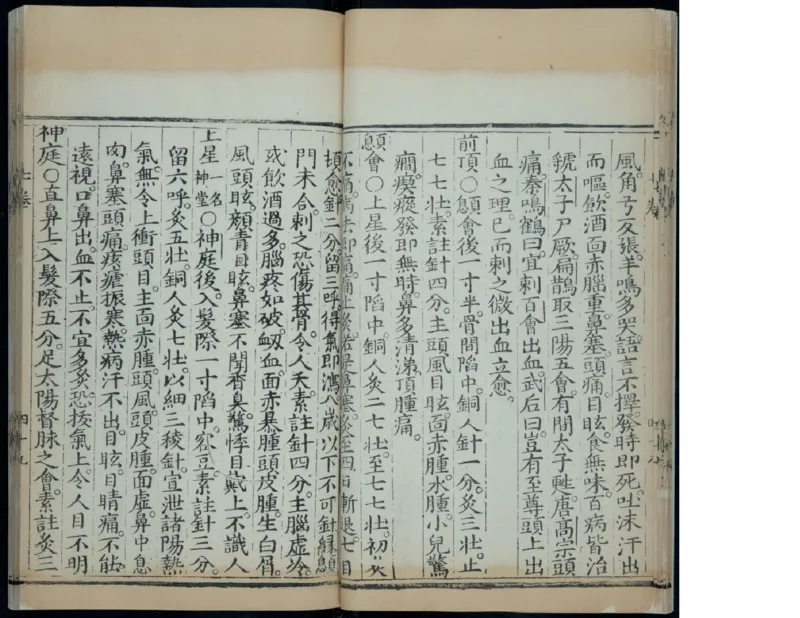 風。角弓反張。羊鳴多哭。語言不擇。發時即死。吐沫汗出
而嘔。飲酒面赤腦重。鼻塞。頭痛目眩。食無味。百病皆治
虢太子尸厥。扁鵲取三陽五會。有間太子甦。唐高宗頭
痛。秦鳴鶴曰。宜刺百會出血。武后曰。豈有至尊頭上出
血之理。已而刺之。微出血立愈。
前頂〇顖會後一寸半。骨間陷中。銅人針一分。灸三壯。止
七七壯。素註針四分。主頭風目眩。面赤腫。水腫。小兒驚
癎。瘈瘲。發即無時。鼻多清涕。頂腫痛。
顖會〇上星後一寸陷中。銅人灸二七壯。至七七壯。初灸
不痛。病去即痛。痛止灸。若是鼻塞。灸至四日漸退。七日
頓愈。針二分。留三呼。得氣即瀉。八歲以下不可針。緣顖
門未合。刺之恐傷其骨。令人夭。素註針四分。主腦虛冷。
或飲酒過多。腦疼如破。衂血。面赤暴腫。頭皮腫。生白屑。
風頭眩。顔青目眩。鼻塞不聞香臭。驚悸目戴上。不識人
上星一名神堂〇神庭後。入髮際一寸陷中。容豆。素註針三分。
留六呼。灸五壯。銅人灸七壯。以細三稜針。宜泄諸陽熱
氣。無令上衝頭目。主面赤腫。頭風。頭皮腫。面虛。鼻中息
肉。鼻塞頭痛。痎瘧振寒。熱病汗不出。目眩。目睛痛。不能
遠視。口鼻出血不止。不宜多灸。恐拔氣上。令人目不明
神庭〇直鼻上入髮際五分。足太陽督脉之會。素註灸三
七卷
四十九